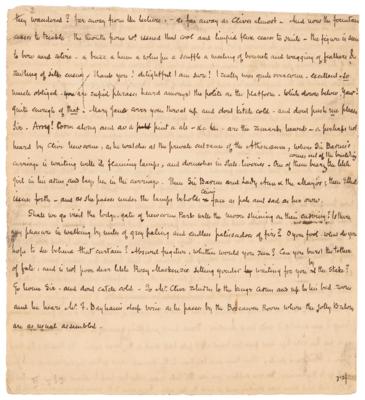 they wandered? far away from the lecture, - as far away as Clive's almost - And now the fountain
ceases to trickle: the mouth from wh issued that cool and limpid flux ceases to smile - the figure is seen
to bow and retire - a buzz a hum a whisper a scuffle a meeting of bonnets and wagging of feathers &
rustling of silks ensues, Thank you! delightful I am sure! I really was quite overcome - excellent - so
much obliged - are rapid phrases heard amongst the polite on the platform - while down below, Yaw!
quite enough of that! Mary Jane cover your throat up and dont kitch cold - and dont push me please
Sir. Arry! Coom along and ave a pint a ale - &c &c - are the remarks heard - or perhaps not
heard by Clive Newcome, as he watches at the private entrance of the Athenaeum, where Sir Barnes's
carriage is waiting with its flaming lamps, and domestics in state liveries - One of them comes out of the building bearing the little
girl in his arms, and lays her in the carriage. Then Sir Barnes and Lady Ann & the Mayor; then Ethel
issues forth - and as she passes under the lamps beholds Clive's face as pale and sad as her own.
Shall we go visit the lodge-gates of Newcome Park with the moon shining on their carving? Is there
any pleasure in walking by miles of grey paling and endless palisadoes of firs? O you fool what do you
hope to see behind that curtain? Absurd fugitive, whither would you run? Can you burst the tether
of fate: and is not poor dear little Rosey Mackenzie sitting yonder waiting for you by the Stake?
Go home Sir - and dont catch cold - So Mr. Clive returns to the Kings Arms and up to his bed room
and he hears Mr. F. Bayham's deep voice as he passes by the Boscawen Room where the Jolly Britons
are as usual assembled.